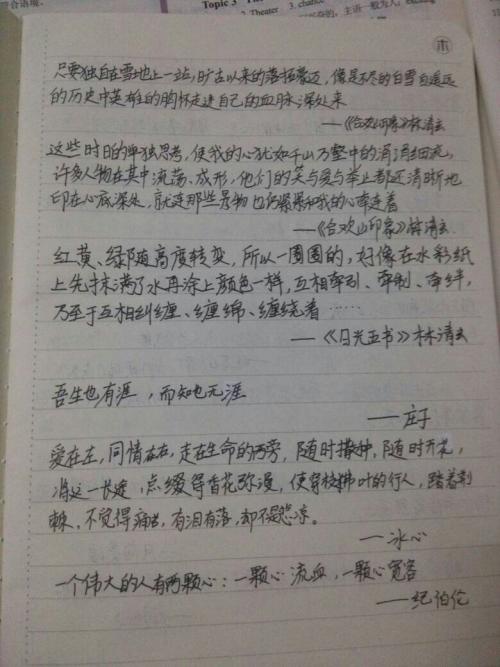 符合语境。
Topic 3
2. Theater
3. chance
木
只要独自在雪地上一站,旷古以来的落拓豪迈,像是不尽的白雪自遥远
的历史中英雄的胸怀走进自己的血脉深处来
——《合欢山印象》林清玄
这些时日的单独思考,使我的心犹如千山万壑中的涓涓细流,
许多人物在其中流荡、成形,他们的笑与爱与举止都还清晰地
印在心底深处,就连那些景物也仍紧紧和我的心牵连着
——《合欢山印象》林清玄
红黄、绿随高度转变,所以一圈圈的,好像在水彩纸
上先抹满了水再涂上颜色一样,互相牵引、牵制、牵绊,
乃至于互相纠缠、缠绵、缠绕着……
——《日光五书》林清玄
吾生也有涯,而知也无涯
——庄子
爱在左,同情在右,走在生命的两旁,随时撒种,随时开花,
将这一长途,点缀得香花弥漫,使穿枝拂叶的行人,踏着荆
棘,不觉得痛苦,有泪可落,却不是悲凉。
——冰心
一个伟大的人有两颗心:一颗心流血,一颗心宽容
——纪伯伦